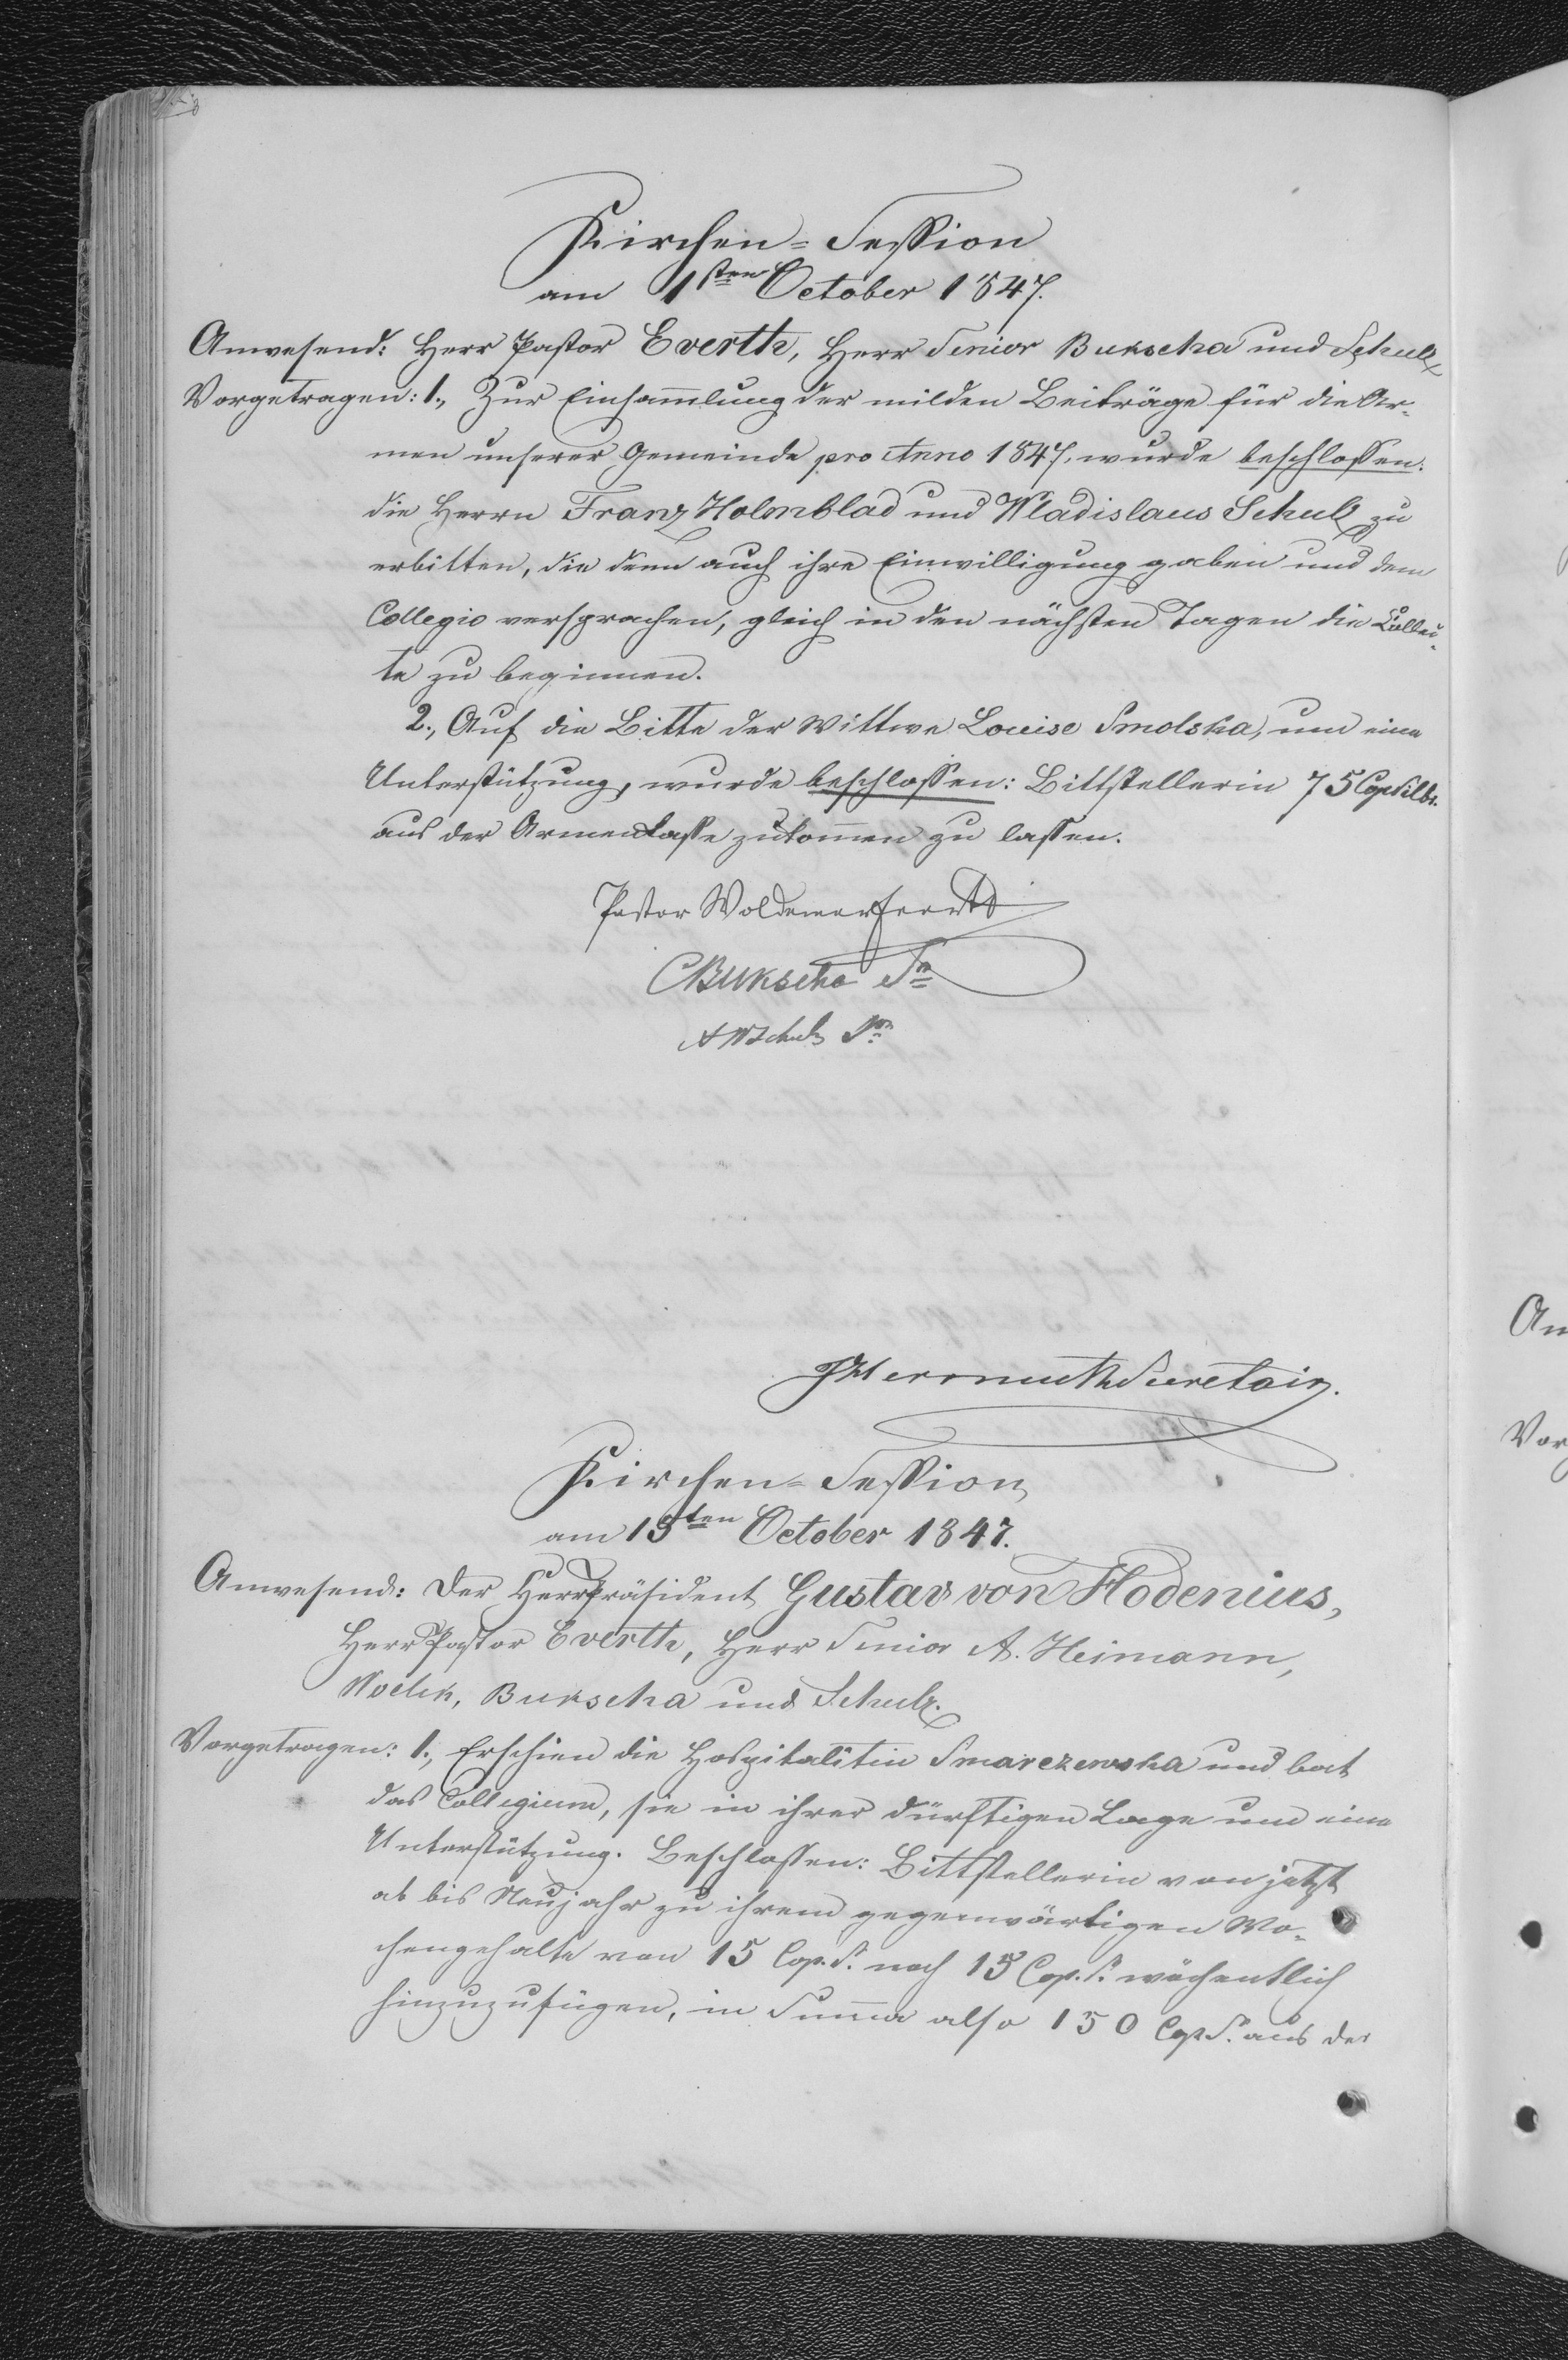 Kirchen-Session
am 1sten October 1847.
Anwesend: Herr Pastor Everth, Herr Senior Bukscha und Schulz
Vorgetragen: 1., Zur Einsam̄lung der milden Beiträge für die Ar-
men unserer Gemeinde pro Anno 1847, wurde beschlossen:
die Herrn Franz Holmblad und Wladislaus Schulz zu
erbitten, die denn auch ihre Einwilligung gaben und dem
Collegio versprachen, gleich in den nächsten Tagen die Collec-
te zu beginnen.
2., Auf die Bitte der Wittwe Louise Smolska, um eine
Unterstützung, wurde beschlossen: Bittstellerin 75 Cop Silbr.
aus der Armenkasse zukom̄en zu lassen.
Pastor Woldemar Everth
CBukscha Sn
AWSchulz Sn
Hermuth Secretair.
Kirchen-Session
am 15ten October 1847.
Anwesend: Der Herr Präsident Gustav von Hodenius,
Herr Pastor Everth, Herr Senior A. Heimann,
Woelck, Bukscha und Schulz.
Vorgetragen: 1., Erschien die Hospitalitin Smarczewska und bat
das Collegium, sie in ihrer dürftigen Lage um eine
Unterstützung. Beschlossen: Bittstellerin von jetzt
ab bis Neujahr zu ihrem gegenwärtigen Wo-
chengehalte von 15 Cop. S. noch 15 Cop. S. wöchentlich
hinzuzufügen, in Sum̄a also 150 Cop S. aus der